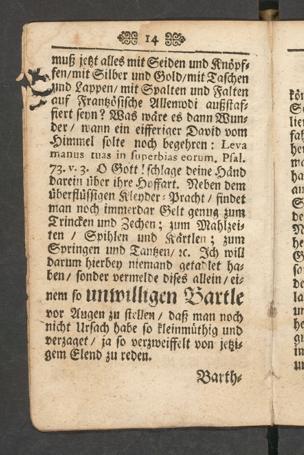 14
muß jetzt alles mit Seiden und Knöpf-
fen/mit Silber und Gold/mit Taschen
und Lappen/mit Spalten und Falten
auf Frantzösische Allemodi außstaf-
fiert seyn? Was wäre es dann Wun-
der / wann ein eifferiger David vom
Himmel solte noch begehren: Leva
manus tuas in superbias eorum. Psal.
73. v. 3. O Gott! schlage deine Händ
darein über ihre Hoffart. Neben dem
überflüssigen Kleyder-Pracht / findet
man noch immerdar Gelt genug zum
Trincken und Zechen; zum Mahlzei-
ten / Spihlen und Kärtlen; zum
Springen und Tantzen/ ꝛc. Ich will
darum hierbey niemand getadlet ha-
ben / sonder vermelde dises allein / ei-
nem so unwilligen Bartle
vor Augen zu stellen / daß man noch
nicht Ursach habe so kleinmüthig und
verzaget / ja so verzweiffelt von jetzi-
gem Elend zu reden.
Barth-